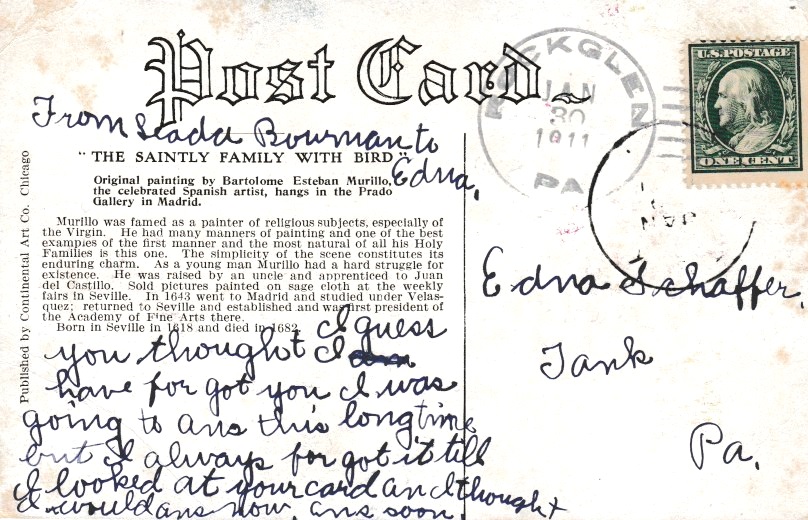 Post Card
From Scada Bowman to
Edna,
"THE SAINTLY FAMILY WITH BIRD"
Original painting by Bartolome Esteban Murillo,
the celebrated Spanish artist, hangs in the Prado
Gallery in Madrid.
Murillo was famed as a painter of religious subjects, especially of
the Virgin. He had many manners of painting and one of the best
examples of the first manner and the most natural of all his Holy
Families is this one. The simplicity of the scene constitutes its
enduring charm. As a young man Murillo had a hard struggle for
existence. He was raised by an uncle and apprenticed to Juan
del Castillo. Sold pictures painted on sage cloth at the weekly
fairs in Seville. In 1643 went to Madrid and studied under Velas-
quez; returned to Seville and established and was first president of
the Academy of Fine Arts there.
Born in Seville in 1618 and died in 1682.
I guess
you thought I am
have for got you I was
going to ans this longtime
but I always for got it till
I looked at your card and I thought
I would ans now, ans soon.
Published by Continental Art Co. Chicago
ROCKGLEN
JAN
30
1911
PA
U.S. POSTAGE
ONE CENT
JAN
Edna Schaffer,
Tank
Pa.